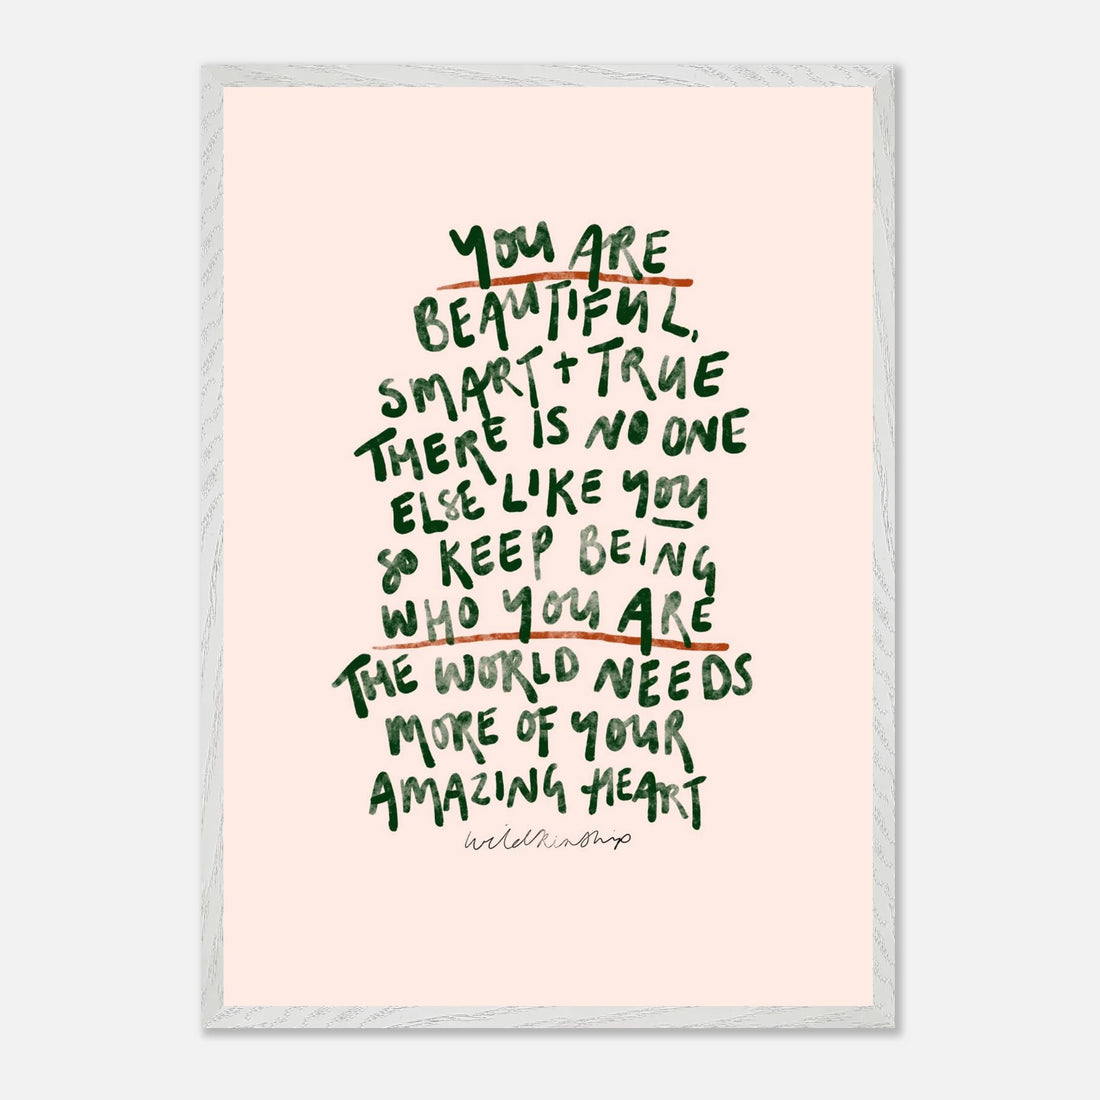 YOU ARE
BEAUTIFUL,
SMART + TRUE
THERE IS NO ONE
ELSE LIKE YOU
SO KEEP BEING
WHO YOU ARE
THE WORLD NEEDS
MORE OF YOUR
AMAZING HEART
wildkinship